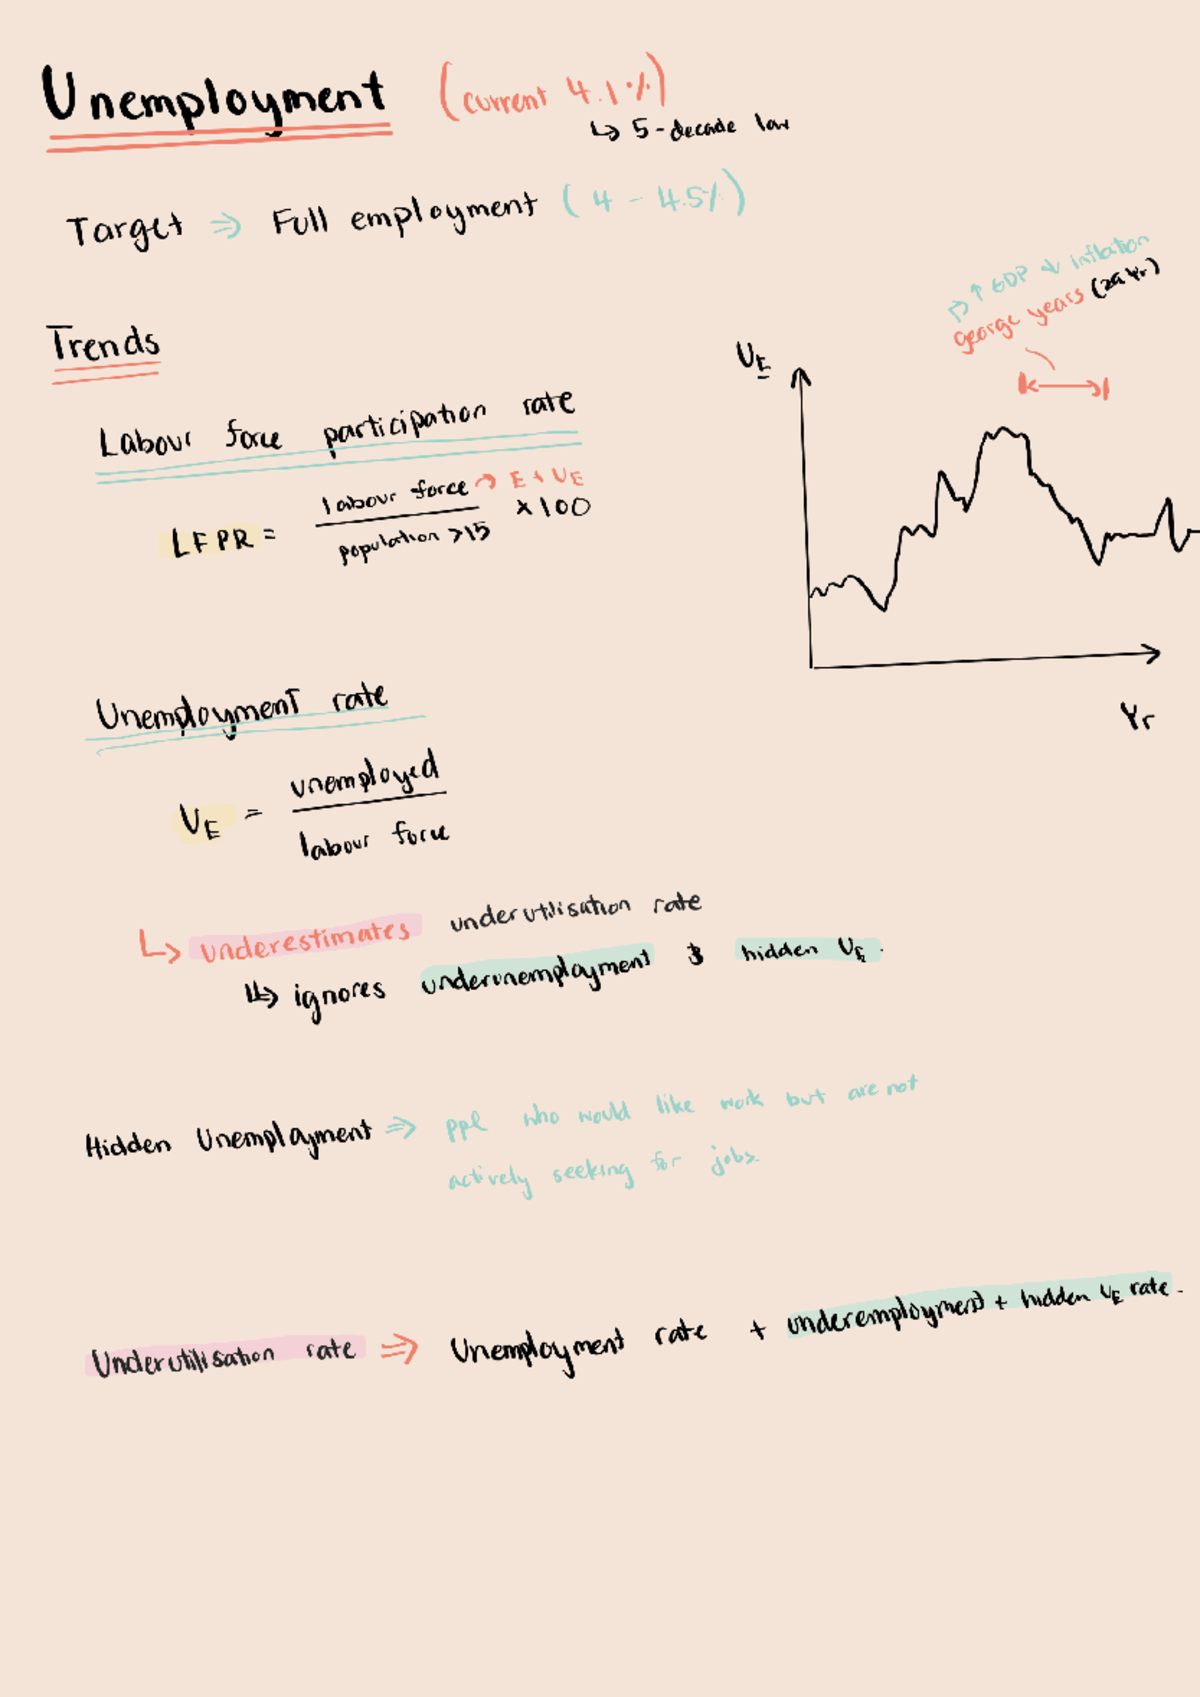 Unemployment (current 4.1%)
↳ 5-decade low
Target ⇒ Full employment (4 - 4.5%)
↱ ↑ GDP ↓ inflation
george years (29 yr)
Trends
UE
Labour force participation rate
LFPR = labour force → E + UE
population >15 × 100
Yr
Unemployment rate
UE = unemployed
labour force
↳ underestimates underutilisation rate
↳ ignores underunemployment & hidden UE.
Hidden Unemployment ⇒ ppl who would like work but are not
actively seeking for jobs.
Underutilisation rate ⇒ Unemployment rate + underemployment + hidden UE rate.